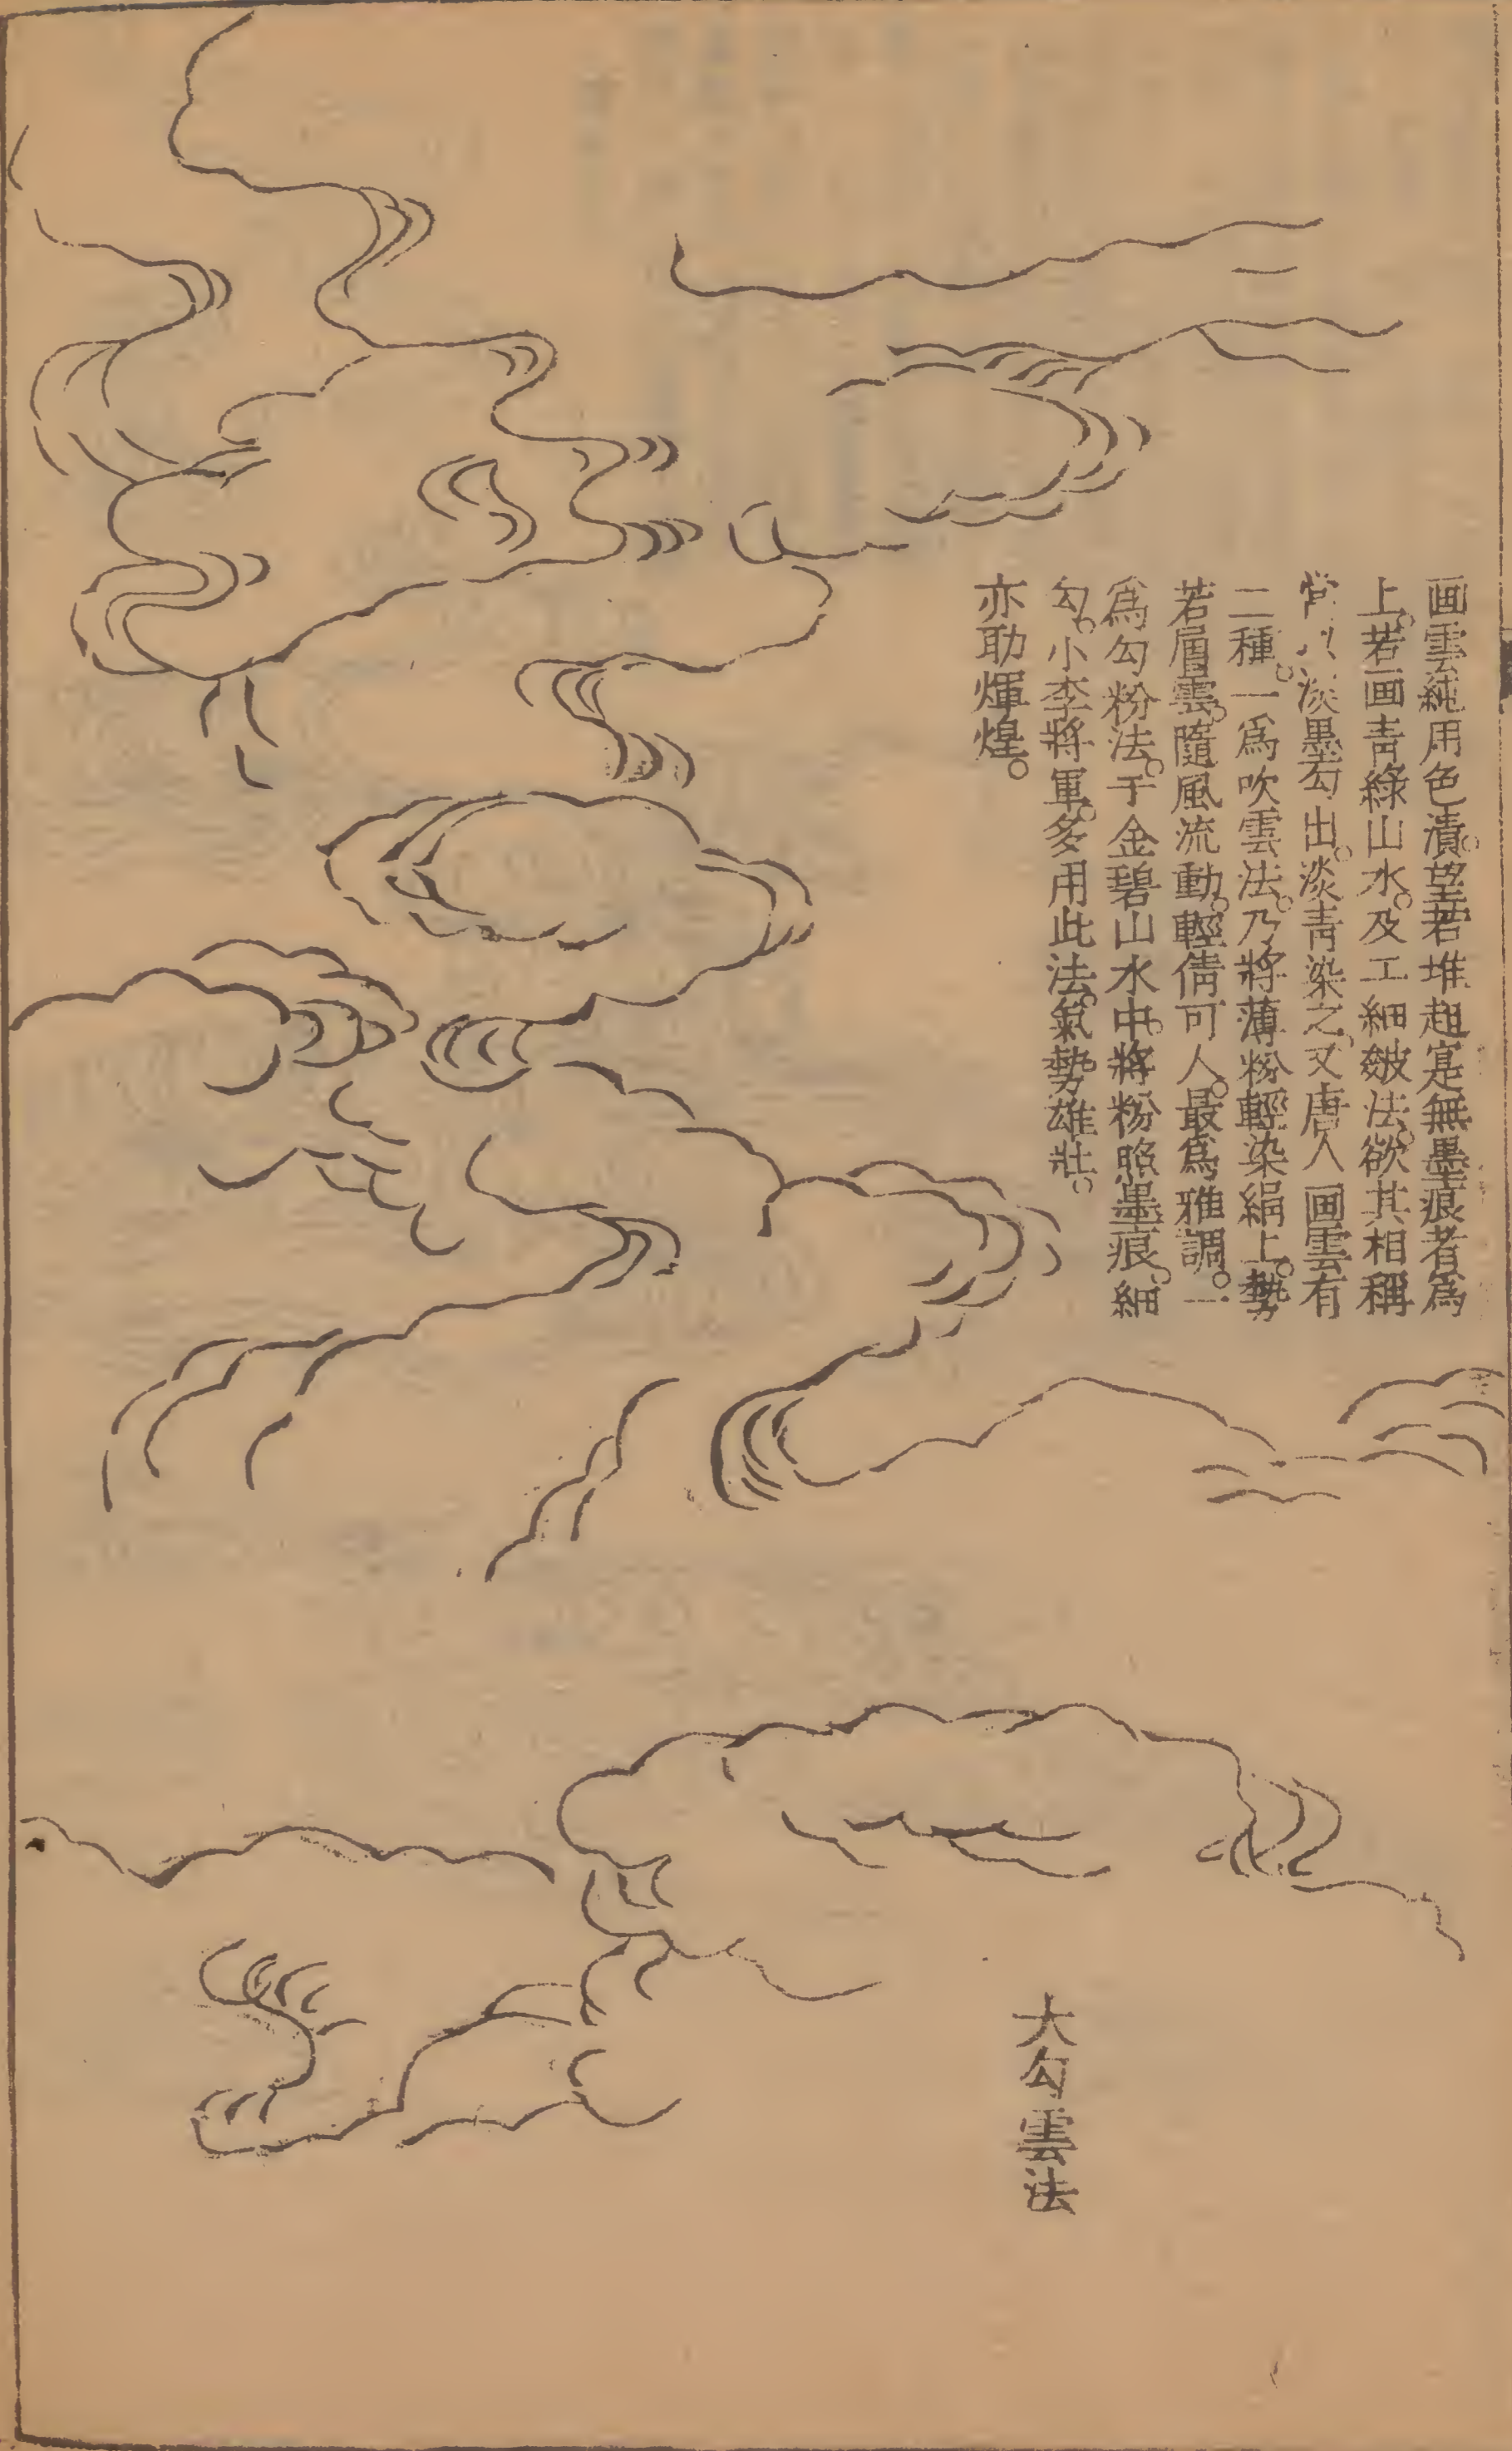 画雲純用色漬。望若堆起寔無墨痕者為
上。若画青綠山水。及工細皴法。欲其相稱
當以淡墨勾出。淡青染之。又唐人画雲有
二種。一爲吹雲法。乃將薄粉輕染絹上。勢
若層雲。隨風流動。輕倩可人。最爲雅調。一
爲勾粉法。于金碧山水中。將粉照墨痕。細
勾。小李將軍。多用此法。氣勢雄壯。
亦助煇煌。
大勾雲法